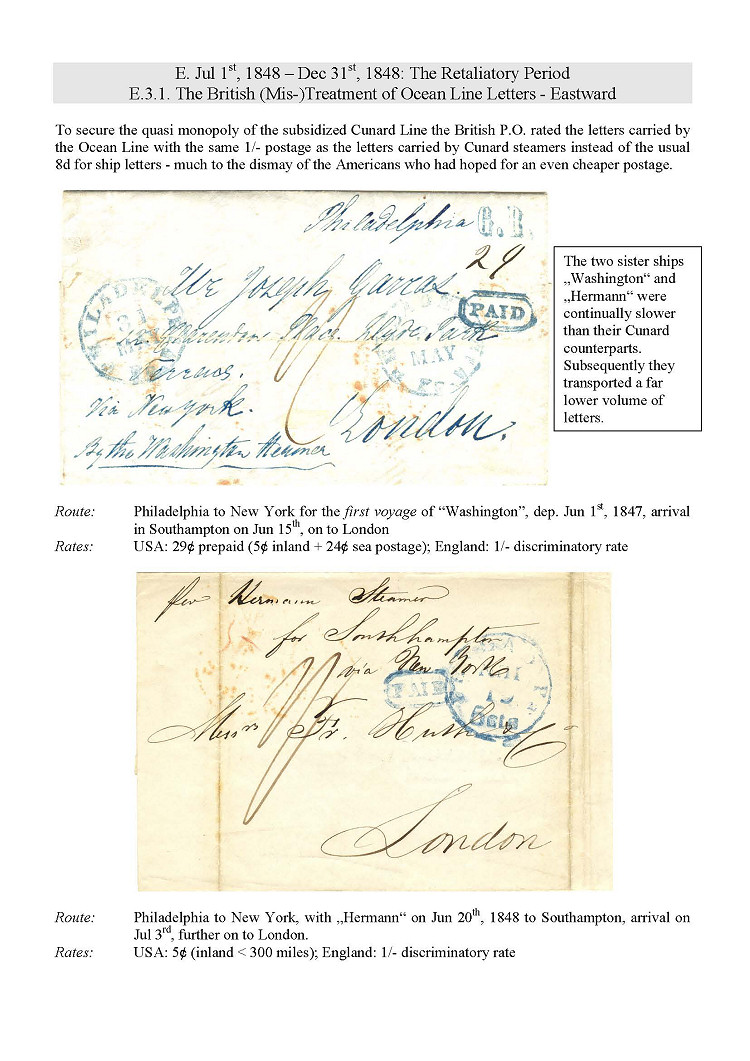 E. Jul 1st, 1848 – Dec 31st, 1848: The Retaliatory Period
E.3.1. The British (Mis-)Treatment of Ocean Line Letters - Eastward
To secure the quasi monopoly of the subsidized Cunard Line the British P.O. rated the letters carried by
the Ocean Line with the same 1/- postage as the letters carried by Cunard steamers instead of the usual
8d for ship letters - much to the dismay of the Americans who had hoped for an even cheaper postage.
Philadelphia
29
Joseph
PAID
PHILADELP
31
Place Hyde Park
MAY
Terrace.
Via New York.
London.
By the Washington Steamer
The two sister ships
„Washington“ and
„Hermann“ were
continually slower
than their Cunard
counterparts.
Subsequently they
transported a far
lower volume of
letters.
Route: Philadelphia to New York for the first voyage of “Washington”, dep. Jun 1st, 1847, arrival
in Southampton on Jun 15th, on to London
Rates: USA: 29¢ prepaid (5¢ inland + 24¢ sea postage); England: 1/- discriminatory rate
per Hermann Steamer
for Southhampton
via New York
PAID
Messrs Fr. Huth & Co
London
Route: Philadelphia to New York, with „Hermann“ on Jun 20th, 1848 to Southampton, arrival on
Jul 3rd, further on to London.
Rates: USA: 5¢ (inland < 300 miles); England: 1/- discriminatory rate